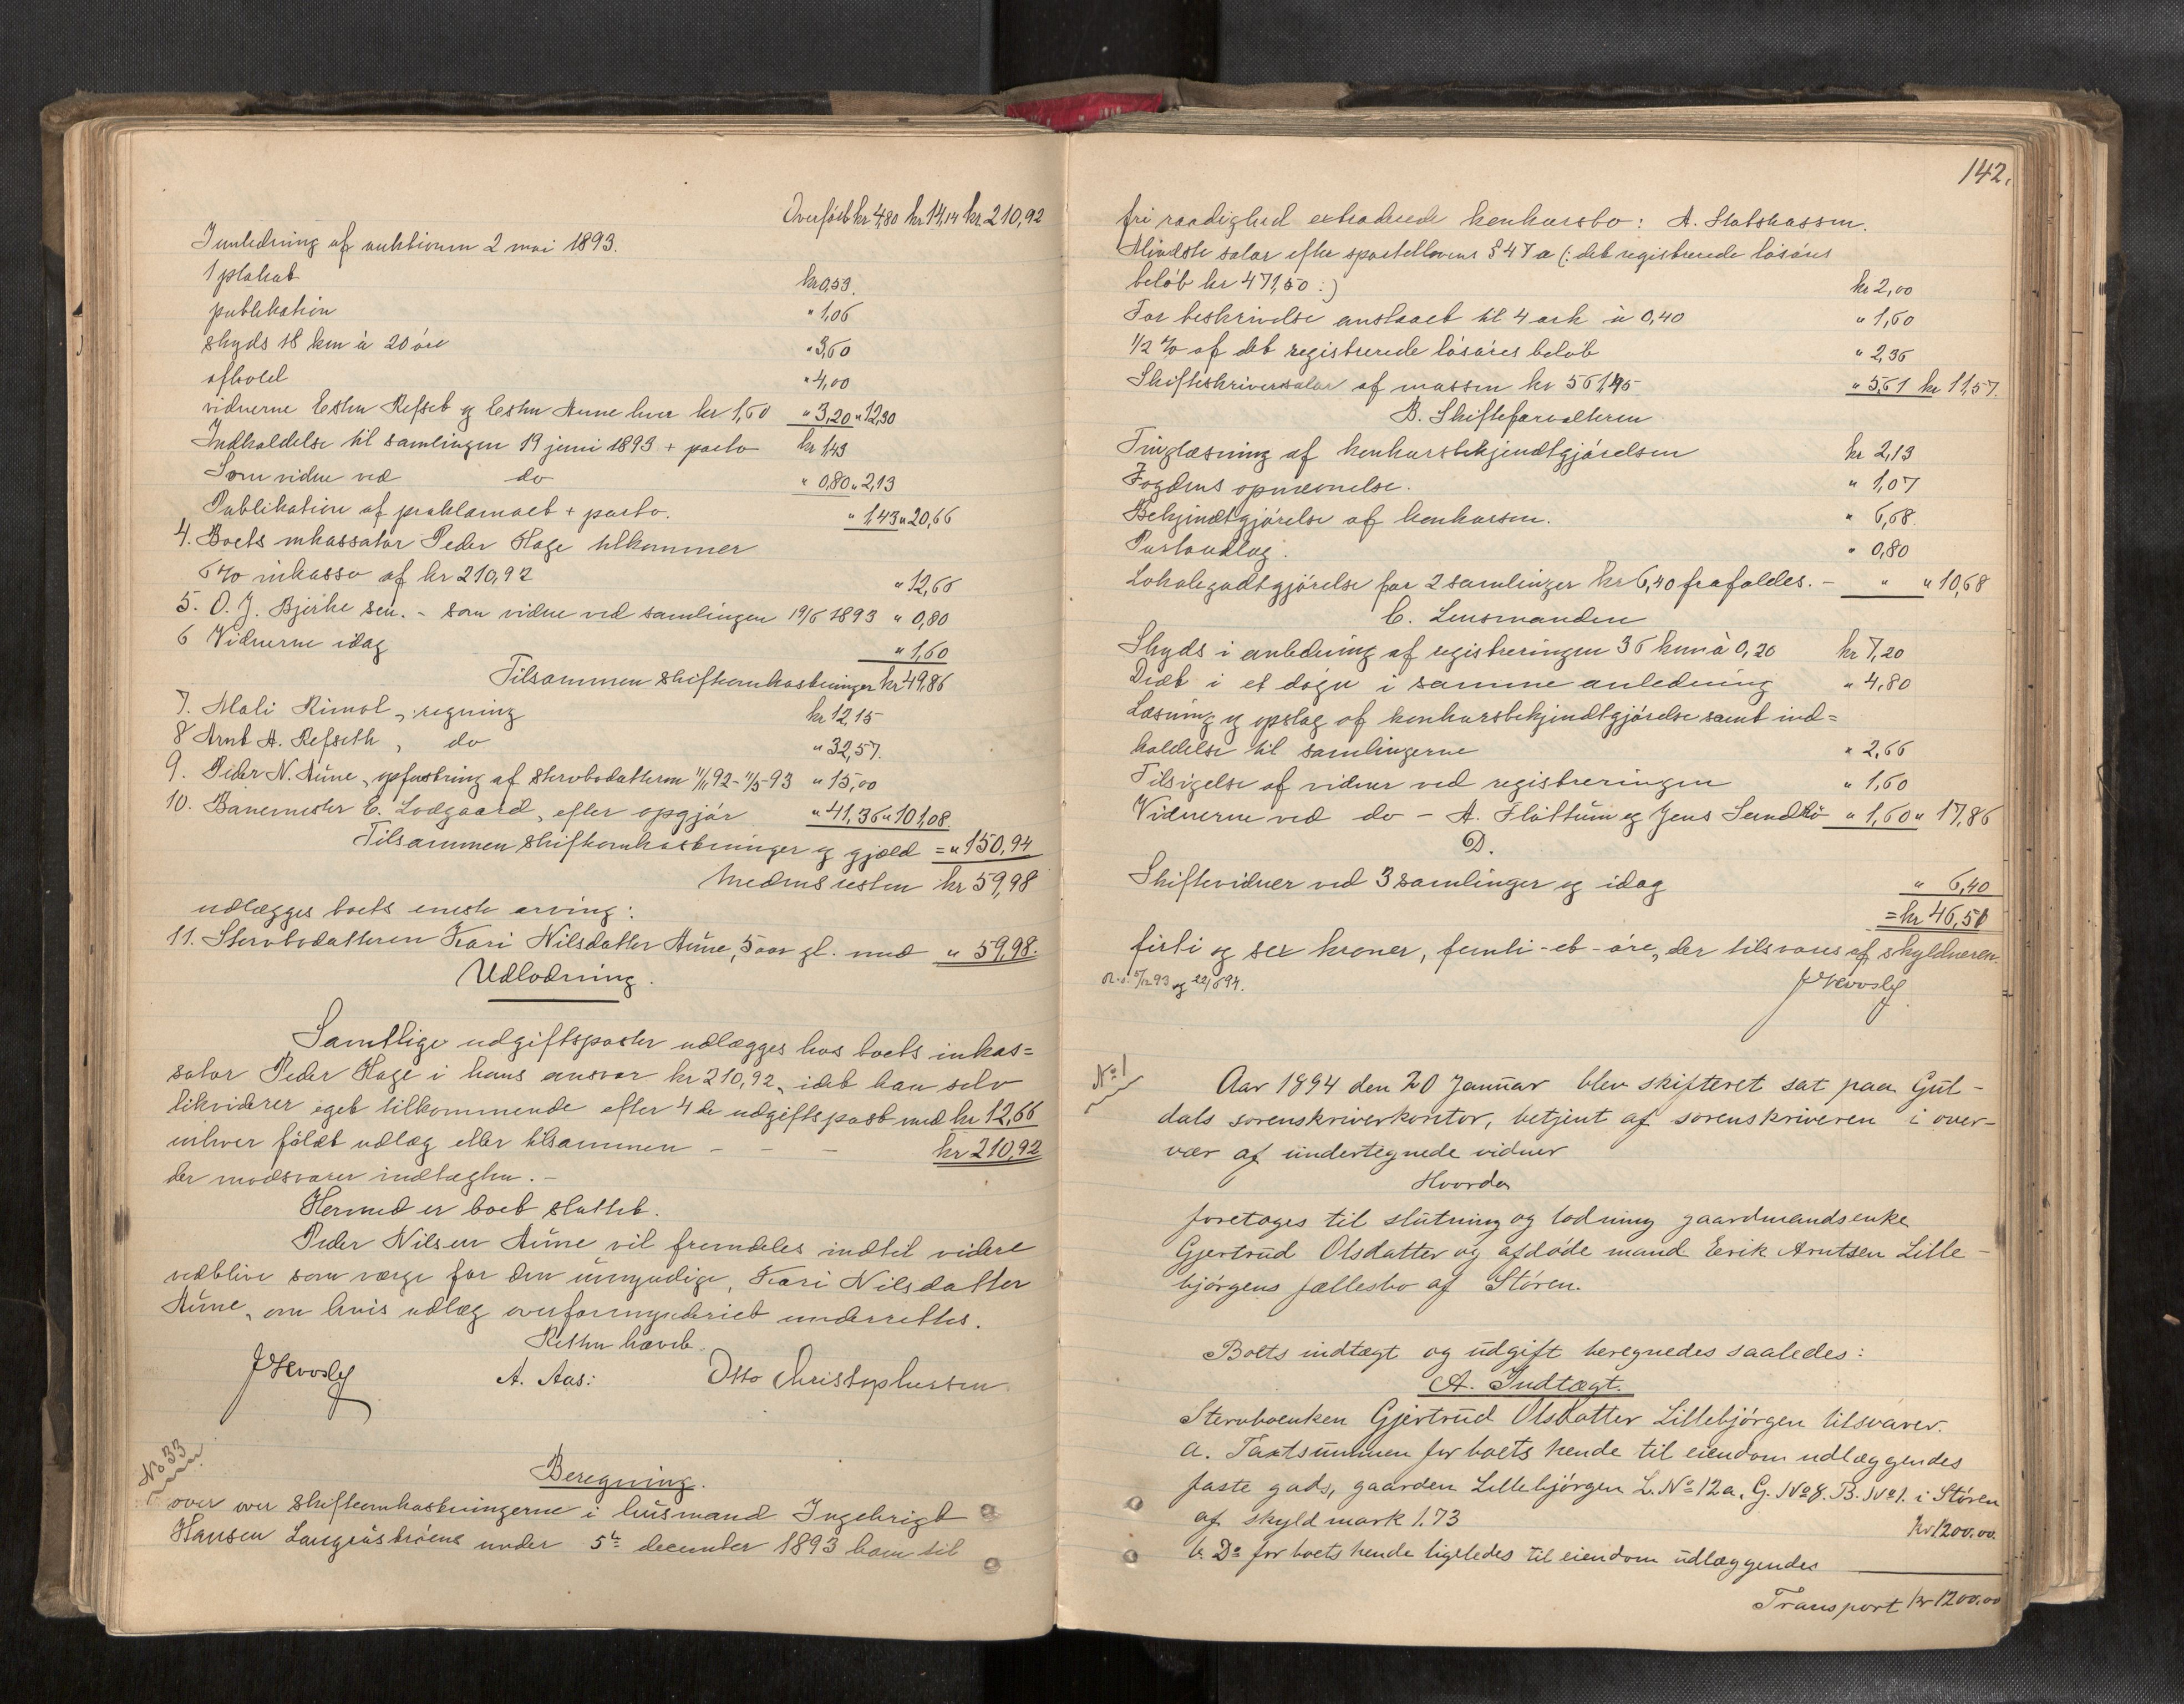 Overført kr 4,80 kr 14,14 kr. 210,92
I anledning af auktionen 2 mai 1893.
1 plakat kr 0,53.
publikation " 1,06
skyds 18 km à 20 øre " 3,60
ophold " 4,00
vidnerne Esten Refset og Esten Aune hver kr 1,60 " 3,20 " 12,30
Indkaldelse til samlingen 19 juni 1893 + porto kr 1,43
Som vidne ved do " 0,80 " 2,13
Publikation af proklamaet + porto. " 1,43 " 20,66
4. Boets inkassator Peder Hage tilkommer
6% inkasso af kr 210,92 " 12,66
5. O. J. Bjerke sen. - som vidne ved samlingen 19/6 1893 " 0,80
6 Vidnerne idag " 1,60
Tilsammen skifteomkostninger kr 49,86
7. Mali Rimol, regning kr 12,15
8 Arnt A. Refseth, do " 32,57.
9. Peder N. Aune, opfostring af stervbodatteren 11/11 92 - 11/5 93 " 15,00
10. Banemester E. Lodgaard, efter opgjør " 41,36 " 101,08.
Tilsammen skifteomkostninger og gjæld = " 150,94
hvedens resten kr 59,98
udlægges boets eneste arving:
11. Stervbodatteren Kari Nilsdatter Aune, 5 aar gl. med " 59,98.
Udlodning.
Samtlige udgiftsposter udlægges hos boets inkas=
sator Peder Hage i hans ansvar kr 210,92, idet han selv
likviderer eget tilkommende efter 4de udgiftspost med kr 12,66
enhver følde udlæg eller tilsammen - - - kr 210,92
der modsvarer indtægten. -
Hermed er boet sluttet.
Peder Nilsen Aune vil fremdeles indtil videre
vedblive som værge for den umyndige, Kari Nilsdatter
Aune, om hvis udlæg overformynderiet underrettes.
Retten hævet.
A. Aas: Otto Christophersen
No 33
Beregning.
over over skifteomkostningerne i husmand Ingebrigt
Hansen Langrusbrøens under 5te december 1893 ham til
142.
fri raadighed extraderede konkursbo: A. Statskassen.
Mindste salar efter sportellovens § 47 a (: det registrerede løsøres
beløb kr 471,50 :) kr 2,00
For beskrivelse anslaaet til 4 ark à 0,40 " 1,60
1/2 % af det registrerede løsøres beløb " 2,36
Skifteskriversalar af massen kr 561,45 " 5,61 kr 11,57.
B. Skifteforvalteren
Tinglæsning af konkursbekjendtgjørelsen kr 2,13
Fogdens opnævnelse. " 1,07
Bekjendtgjørelse af konkursen. " 6,68.
Portoudlæg. " 0,80
Lokalegodtgjørelse for 2 samlinger kr 6,40 frafaldes. - " " 10,68
C. Lensmanden
Skyds i anledning af registreringen 36 km à 0,20 kr 7,20
Diæt i et døgn i samme anledning " 4,80
Læsning og opslag af konkursbekjendtgjørelse samt ind=
kaldelse til samlingerne " 2,66
Tilsigelse af vidner ved registreringen " 1,60
Vidnerne ved do - A. Fløttum og Jens Sundliø " 1,60 " 17,86
D.
Skiftevidner ved 3 samlinger og idag " 6,40
= kr 46,51
firti og sex kroner, femti-et-øre, der tilsvares af skyldneren.
5/12 93 og 22/6 94.
No 1
Aar 1894 den 20 Januar blev skifteret sat paa Gul-
dals sorenskriverkontor, betjent af sorenskriveren i over-
vær af undertegnede vidner
Hvorda
foretoges til slutning og lodning gaardmandsenke
Gjertrud Olsdatter og afdøde mand Erik Arntsen Lille-
bjørgens fællesbo af Støren.
Boets indtægt og udgift beregnedes saaledes:
A. Indtægt.
Stervboenken Gjertrud Olsdatter Lillebjørgen tilsvarer.
a. Taxtsummen for boets hende til eiendom udlæggendes
faste gods, gaarden Lillebjørgen L. No 12a, G. No 8. B. No 1. i Støren
af skyld mark 1.73 kr 1200.00.
b. Do for boets hende ligeledes til eiendom udlæggendes
Transport kr 1200.00